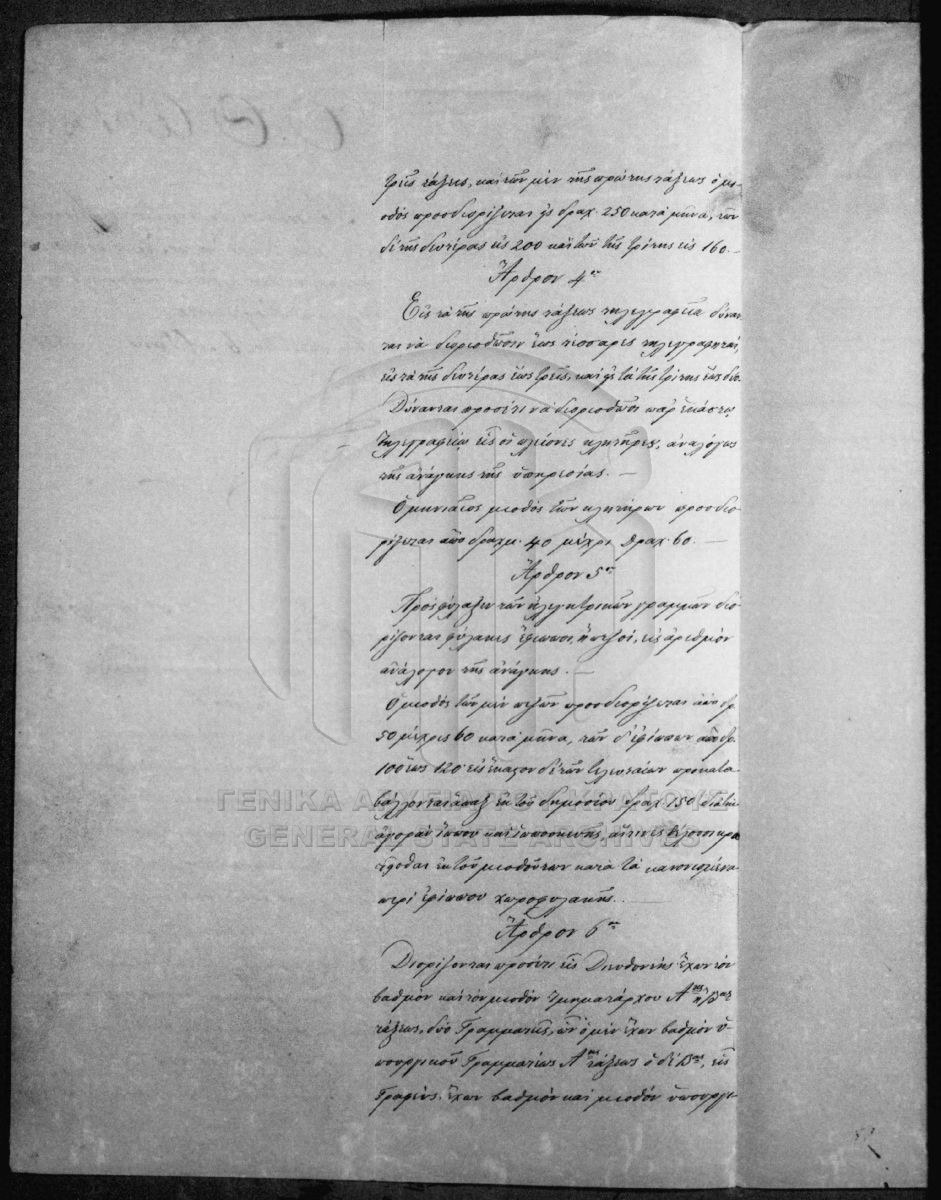 τρεῖς τάξεις, καὶ τῶν μὲν τῆς πρώτης τάξεως ὁ μι-
σθὸς προσδιορίζεται εἰς δραχ. 250 κατὰ μῆνα, τῶν
δὲ τῆς δευτέρας εἰς 200 καὶ τῶν τῆς τρίτης εἰς 160.—
Ἄρθρον 4ον
Εἰς τὰ τῆς πρώτης τάξεως τηλεγραφεῖα δύναν
ται νὰ διορισθῶσιν ἕως τέσσαρες τηλεγραφηταί,
εἰς τὰ τῆς δευτέρας ἕως τρεῖς, καὶ εἰς τὰ τῆς τρίτης ἕως δύο.
Δύνανται προσέτι νὰ διορισθῶσι παρ' ἑκάστῳ
τηλεγραφείῳ εἷς ἢ πλείονες κλητῆρες, ἀναλόγως
τῆς ἀνάγκης τῆς ὑπηρεσίας.—
Ὁ μηνιαῖος μισθὸς τῶν κλητήρων προσδιο
ρίζεται ἀπὸ δραχμ. 40 μέχρι δραχ. 60.—
Ἄρθρον 5ον
Πρὸς φύλαξιν τῶν ἠλεκτρικῶν γραμμῶν διο
ρίζονται φύλακες ἔφιπποι, ἢ πεζοί, εἰς ἀριθμὸν
ἀνάλογον τῆς ἀνάγκης.—
Ὁ μισθὸς τῶν μὲν πεζῶν προσδιορίζεται ἀπὸ δρ.
50 μέχρις 60 κατὰ μῆνα, τῶν δ' ἐφίππων ἀπὸ δρ.
100 ἕως 120· εἰς ἕκαστον δὲ τῶν τελευταίων προκατα-
βάλλονται ἅπαξ ἐκ τοῦ δημοσίου δραχ. 150 διὰ τὴν
ἀγορὰν ἵππου καὶ ἱπποσκευῆς, αἵτινες θέλουσι κρα
τεῖσθαι ἐκ τοῦ μισθοῦ των κατὰ τὰ κανονισμένα
περὶ ἐφίππου χωροφυλακῆς.—
Ἄρθρον 6ον
Διορίζονται προσέτι εἷς Διευθυντής ἔχων τὸν
βαθμὸν καὶ τὸν μισθὸν τμηματάρχου Αης ἢ Βας
τάξεως, δύο Γραμματεῖς, ὧν ὁ μὲν ἔχων βαθμὸν ὑ-
πουργικοῦ Γραμματέως Αης τάξεως ὁ δὲ Βας, εἷς
Γραφεὺς ἔχων βαθμὸν καὶ μισθὸν ὑπουργι-
ΓΕΝΙΚΑ ΑΡΧΕΙΑ ΤΟΥ ΚΡΑΤΟΥΣ
GENERAL STATE ARCHIVES